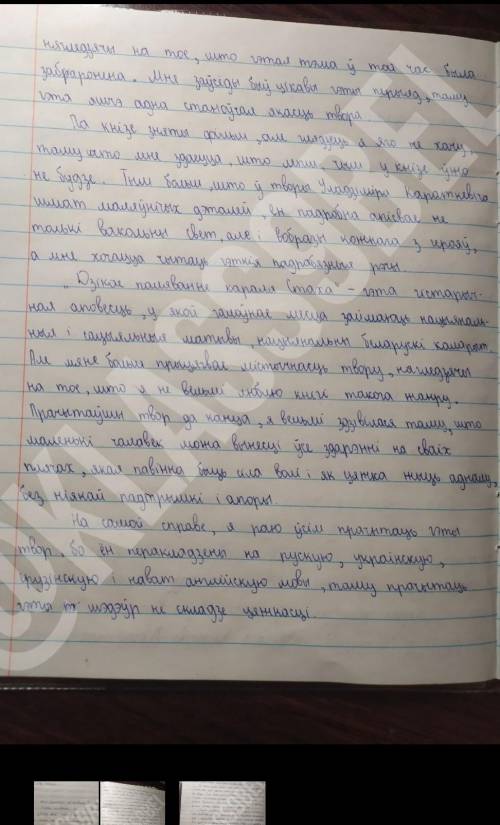 нягледзячы на тое, што гэтая тэма ў той час была
забаронена. Мне заўсёды быў цікавы гэты перыяд, таму
гэта яшчэ адна станоўчая якасць твора.
Па кнізе зняты фільм, але глядзець я яго не хачу,
таму што мне здаецца, што лепш, чым у кнізе ўжо
не будзе. Тым больш, што ў творы Уладзіміра Караткевіча
шмат маляўнічых дэталей, ён падрабна апісвае не
толькі вакольны свет, але і вобразы кожнага з герояў,
а мне хочацца чытаць гэткія падрабязныя рэчы.
„Дзікае паляванне караля Стаха – гэта гістарыч-
ная аповесць, у якой галоўнае месца займаюць нацыяналь-
ныя і сацыяльныя матывы, нацыянальны беларускі каларыт.
Але мяне больш прыцягвае містычнасць твору, нягледзячы
на тое, што я не вельмі люблю кнігі такога жанру.
Прачытаўшы твор да канца, я вельмі здзівілася таму, што
маленькі чалавек можа вынесці ўсе здарэнні на сваіх
плячах, якая павінна быць сіла волі і як цяжка жыць аднаму,
без ніякай падтрымкі і апоры.
На самой справе, я раю ўсім прачытаць гэты
твор, бо ён перакладзены на рускую, украінскую,
грузінскую і нават англійскую мовы, таму прачытаць
гэты шэдэўр не складзе цяжкасці.
@KLASSBEL